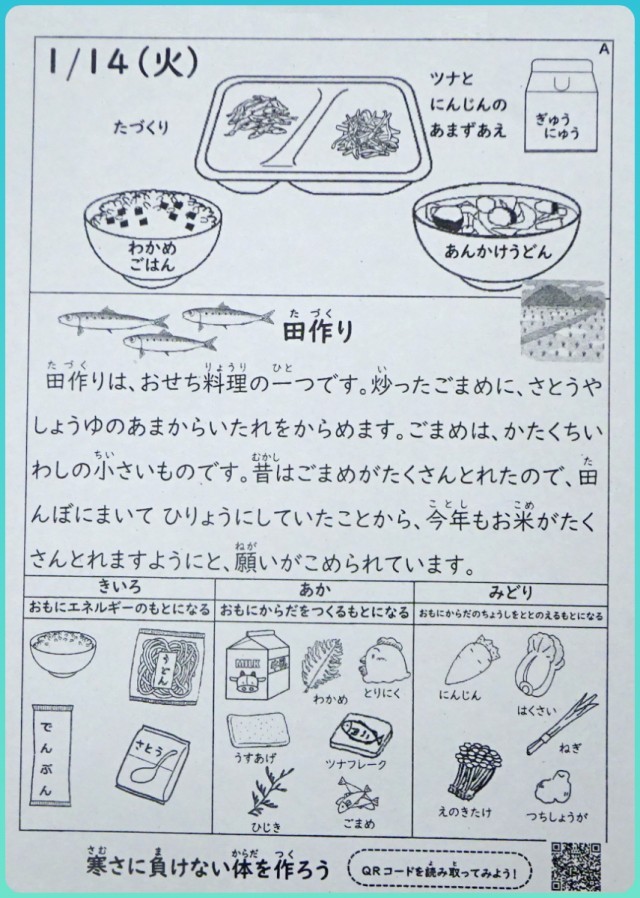 A
1/14(火)
たづくり
ツナと
にんじんの
あまずあえ
ぎゅう
にゅう
わかめ
ごはん
あんかけうどん
田作り
たづく
田作りは、おせち料理の一つです。炒ったごまめに、さとうや
たづく りょうり ひと い
しょうゆのあまからいたれをからめます。ごまめは、かたくちい
わしの小さいものです。昔はごまめがたくさんとれたので、田
ちい むかし た
んぼにまいて ひりょうにしていたことから、今年もお米がたく
ことし こめ
さんとれますようにと、願いがこめられています。
ねが
きいろ
おもにエネルギーのもとになる
うどん
でんぷん
さとう
あか
おもにからだをつくるもとになる
MILK
わかめ
とりにく
うすあげ
ツナフレーク
ひじき
ごまめ
みどり
おもにからだのちょうしをととのえるもとになる
にんじん
はくさい
ねぎ
えのきたけ
つちしょうが
寒さに負けない体を作ろう
さむ ま からだ つく
QRコードを読み取ってみよう!
よ と